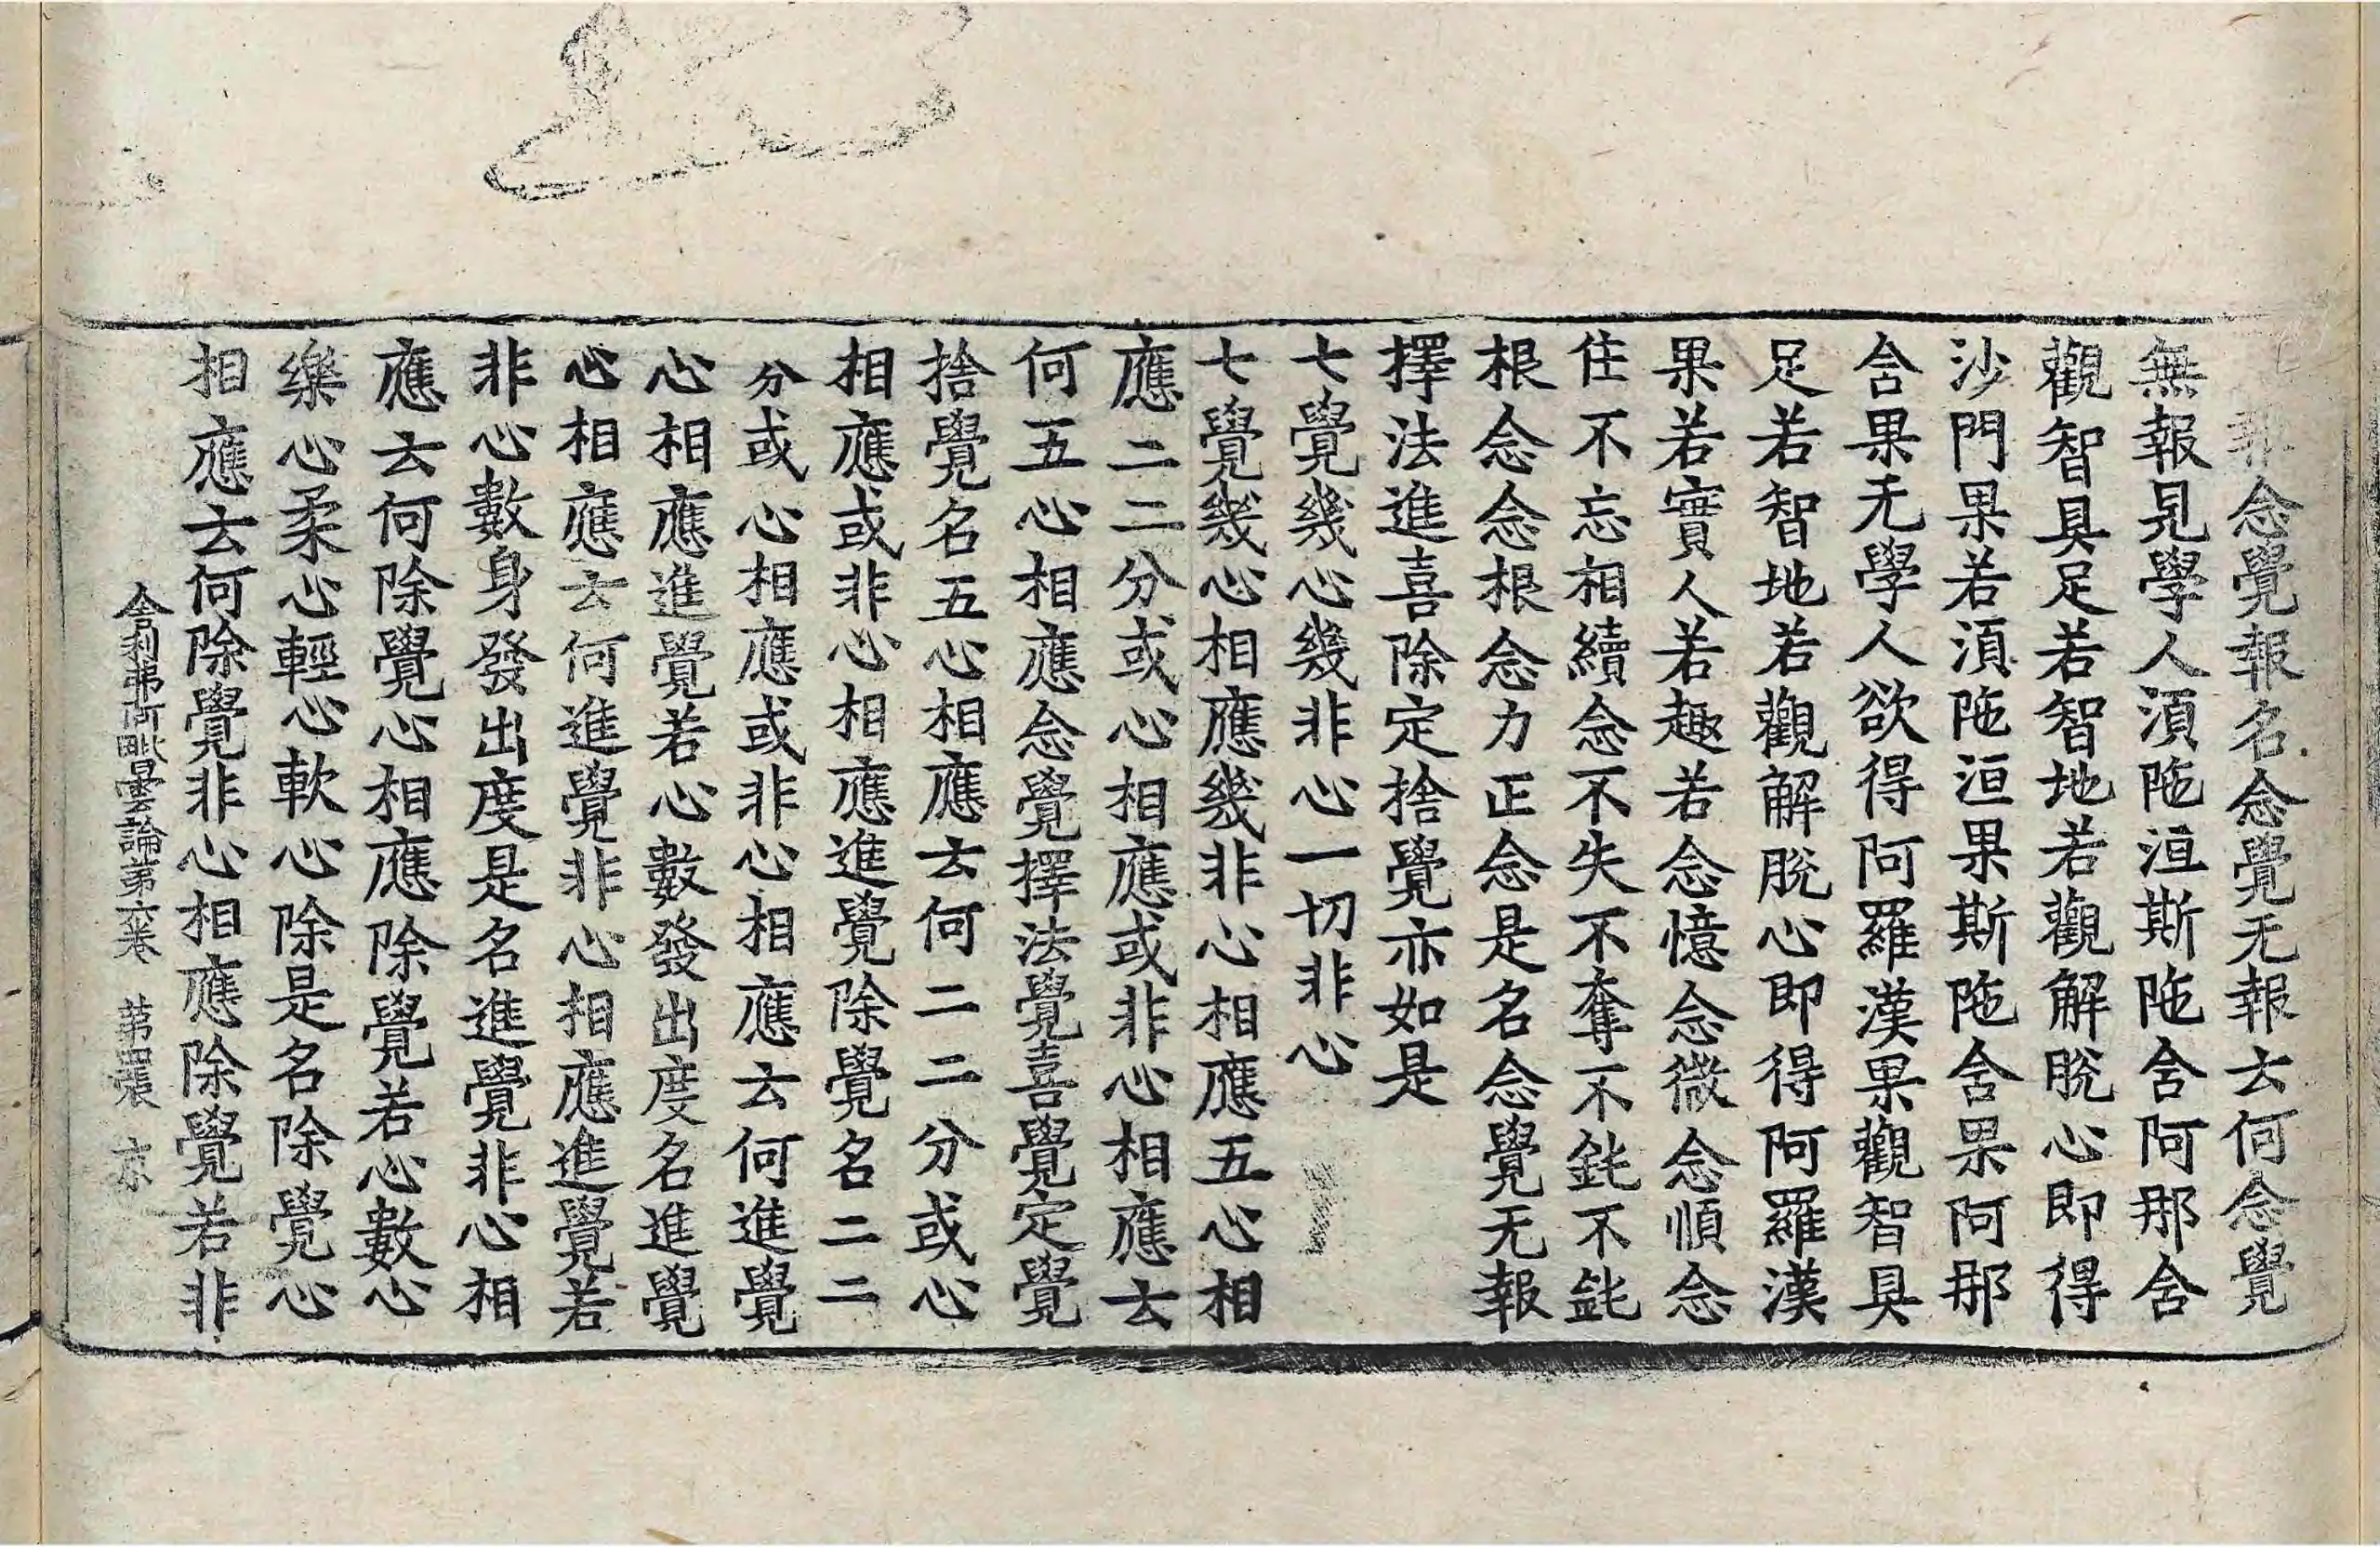 報念覺報名念覺无報云何念覺
無報見學人湏陁洹斯陁含阿那含
觀智具足若智地若觀解脫心即得
沙門果若湏陁洹果斯陁含果阿那
含果无學人欲得阿羅漢果觀智具
足若智地若觀解脫心即得阿羅漢
果若實人若趣若念憶念微念順念
住不忘相續念不失不奪不鈍不鈍
根念念根念力正念是名念覺无報
擇法進喜除定捨覺亦如是
七覺幾心幾非心一切非心
七覺幾心相應幾非心相應五心相
應二二分或心相應或非心相應云
何五心相應念覺擇法覺喜覺定覺
捨覺名五心相應云何二二分或心
相應或非心相應進覺除覺名二二
分或心相應或非心相應云何進覺
心相應進覺若心數發出度名進覺
心相應云何進覺非心相應進覺若
非心數身發出度是名進覺非心相
應云何除覺心相應除覺若心數心
樂心柔心輕心軟心除是名除覺心
相應云何除覺非心相應除覺若非
舍利弗阿毗曇論第六卷 第四張 京